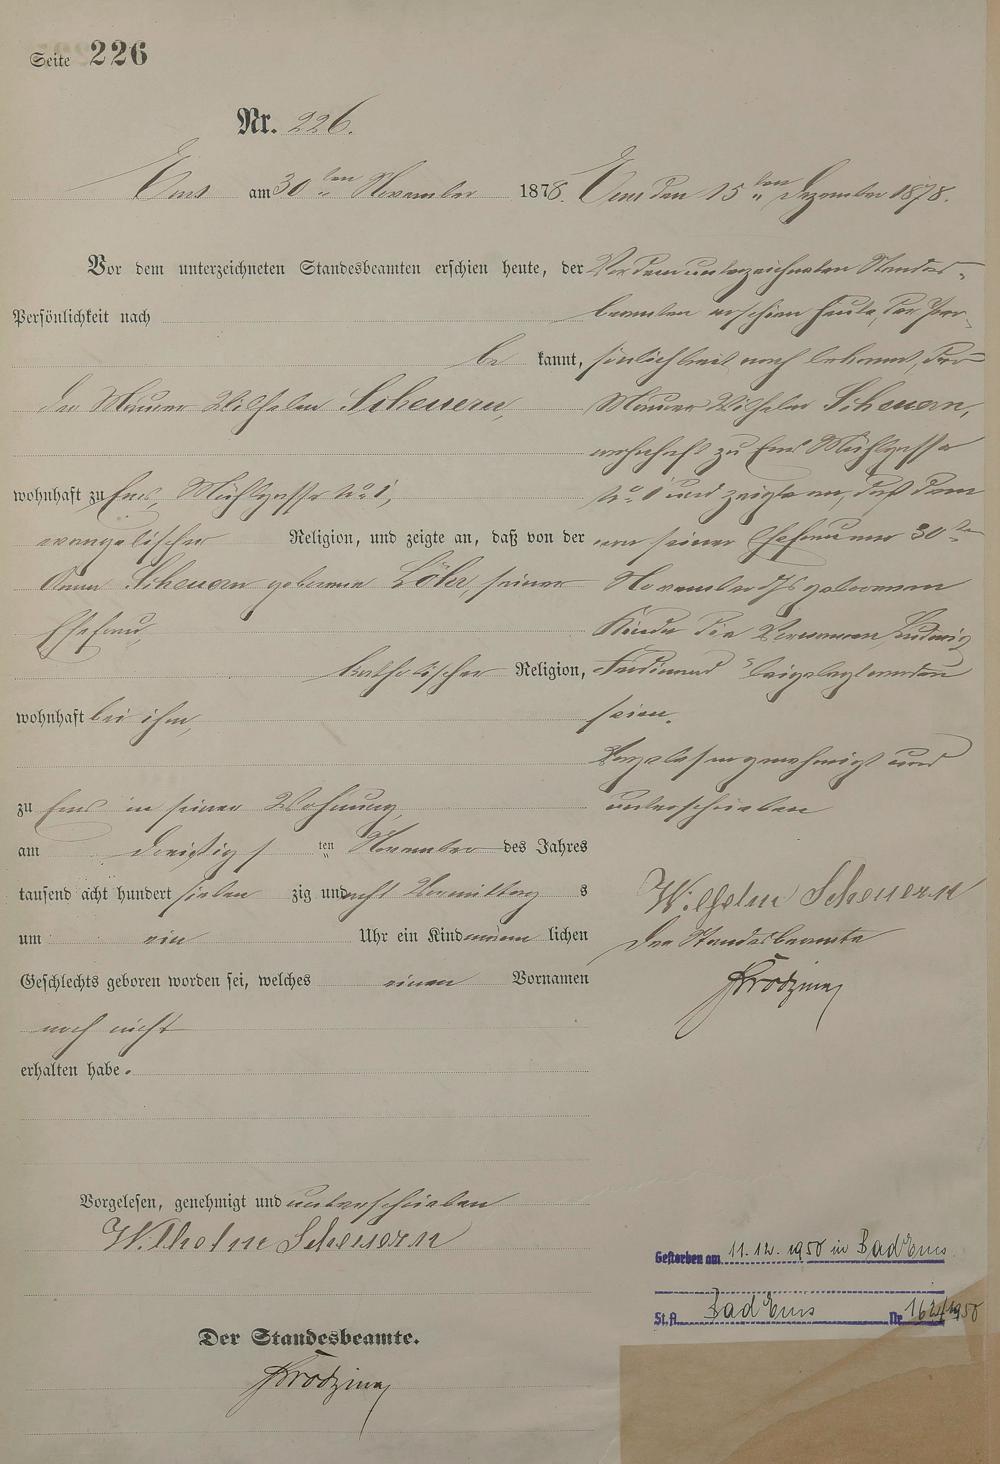 Seite 226
Nr. 226.
Ems am 30ten November 1878.
Vor dem unterzeichneten Standesbeamten erschien heute, der
Persönlichkeit nach
bekannt,
der Maurer Wilhelm Scheuern,
wohnhaft zu Ems, Mühlgasse No 1,
evangelischer Religion, und zeigte an, daß von der
Anna Scheuern geborenen Löhr, seiner
Ehefrau,
katholischer Religion,
wohnhaft bei ihm,
zu Ems in seiner Wohnung,
am dreißigsten November des Jahres
tausend acht hundert siebenzig und acht Vormittags
um ein Uhr ein Kind männlichen
Geschlechts geboren worden sei, welches einen Vornamen
noch nicht
erhalten habe.
Vorgelesen, genehmigt und unterschrieben
Wilhelm Scheuern
Der Standesbeamte.
Ems den 15ten Dezember 1878.
Vor dem unterzeichneten Standes-
beamten erschien heute, der Per-
sönlichkeit nach bekannt, der
Maurer Wilhelm Scheuern,
wohnhaft zu Ems Mühlgasse
No 1 und zeigte an, daß dem
von seiner Ehefrau am 30ten
November d Js geborenen
Kinde die Vornamen Ludwig
Ferdinand beigelegt worden
seien.
Vorgelesen genehmigt und
unterschrieben
Wilhelm Scheuern
Der Standesbeamte
Gestorben am 11.12.1950 in Bad Ems
St.A. Bad Ems Nr. 162/1950